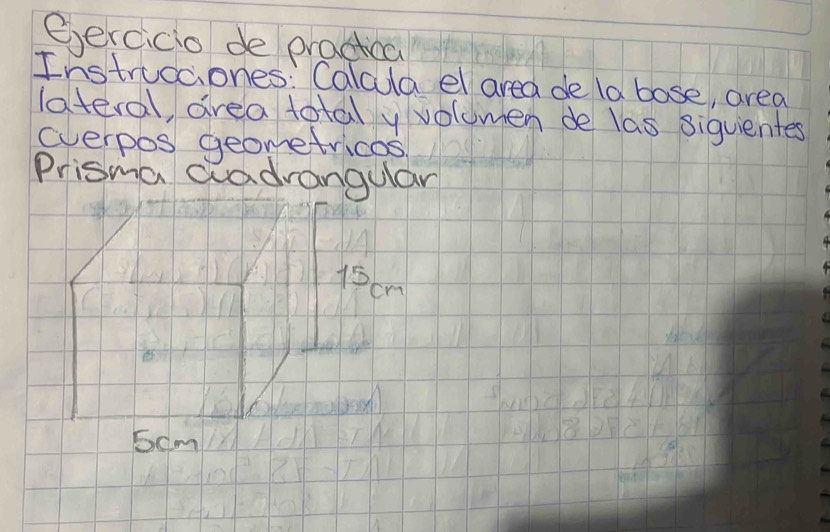 Ejercicio de practica
Instrucciones: Calcula el area de la base, area
lateral, área total y volumen de las siguientes
cuerpos geometricos.
Prisma cuadrangular
15cm
5cm